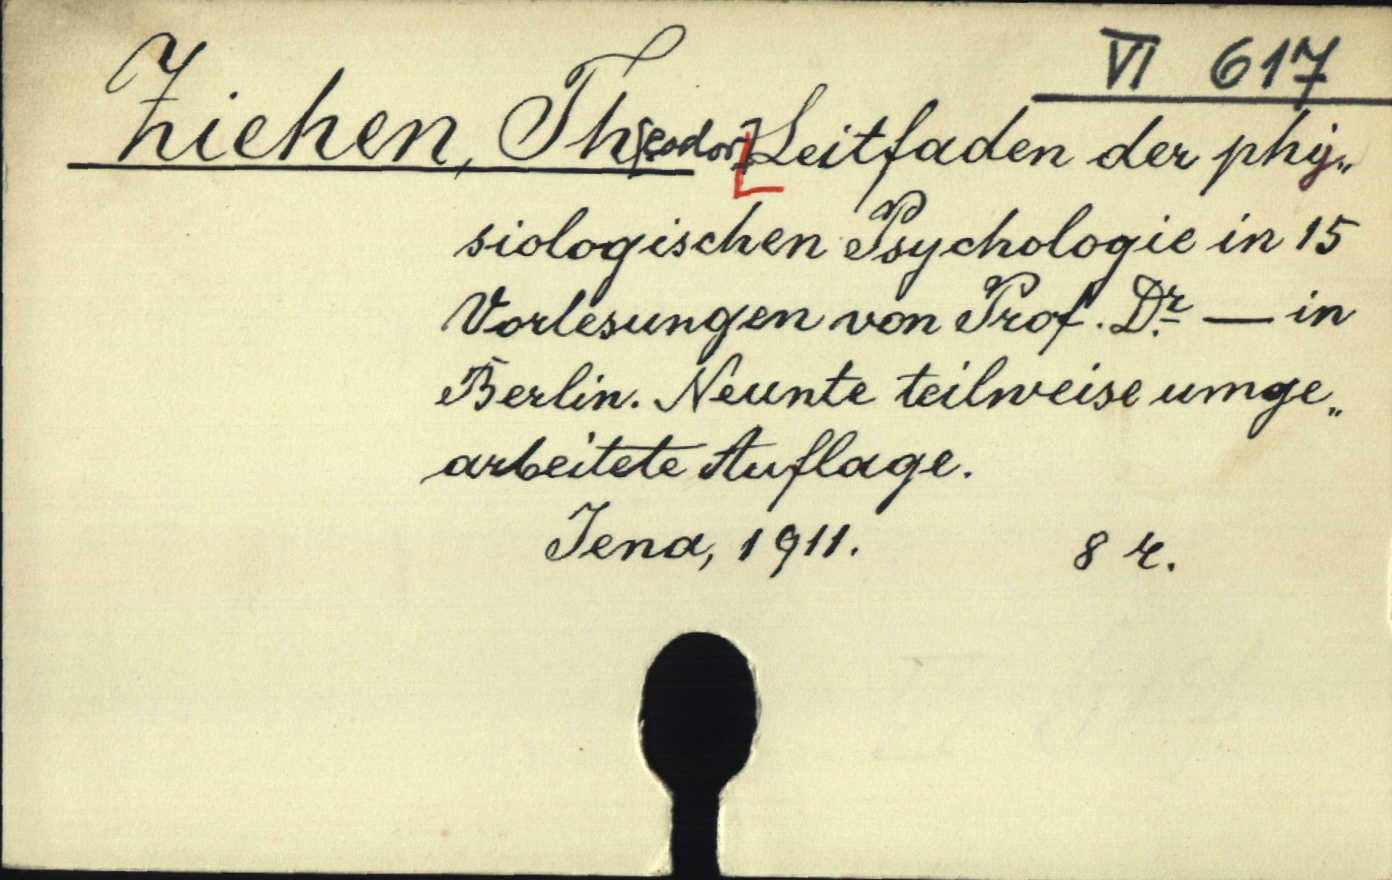 VI 617
Ziehen, Th[eodor] Leitfaden der phy„
siologischen Psychologie in 15
Vorlesungen von Prof. Dr. — in
Berlin. Neunte teilweise umge„
arbeitete Auflage.
Jena, 1911. 8 r.